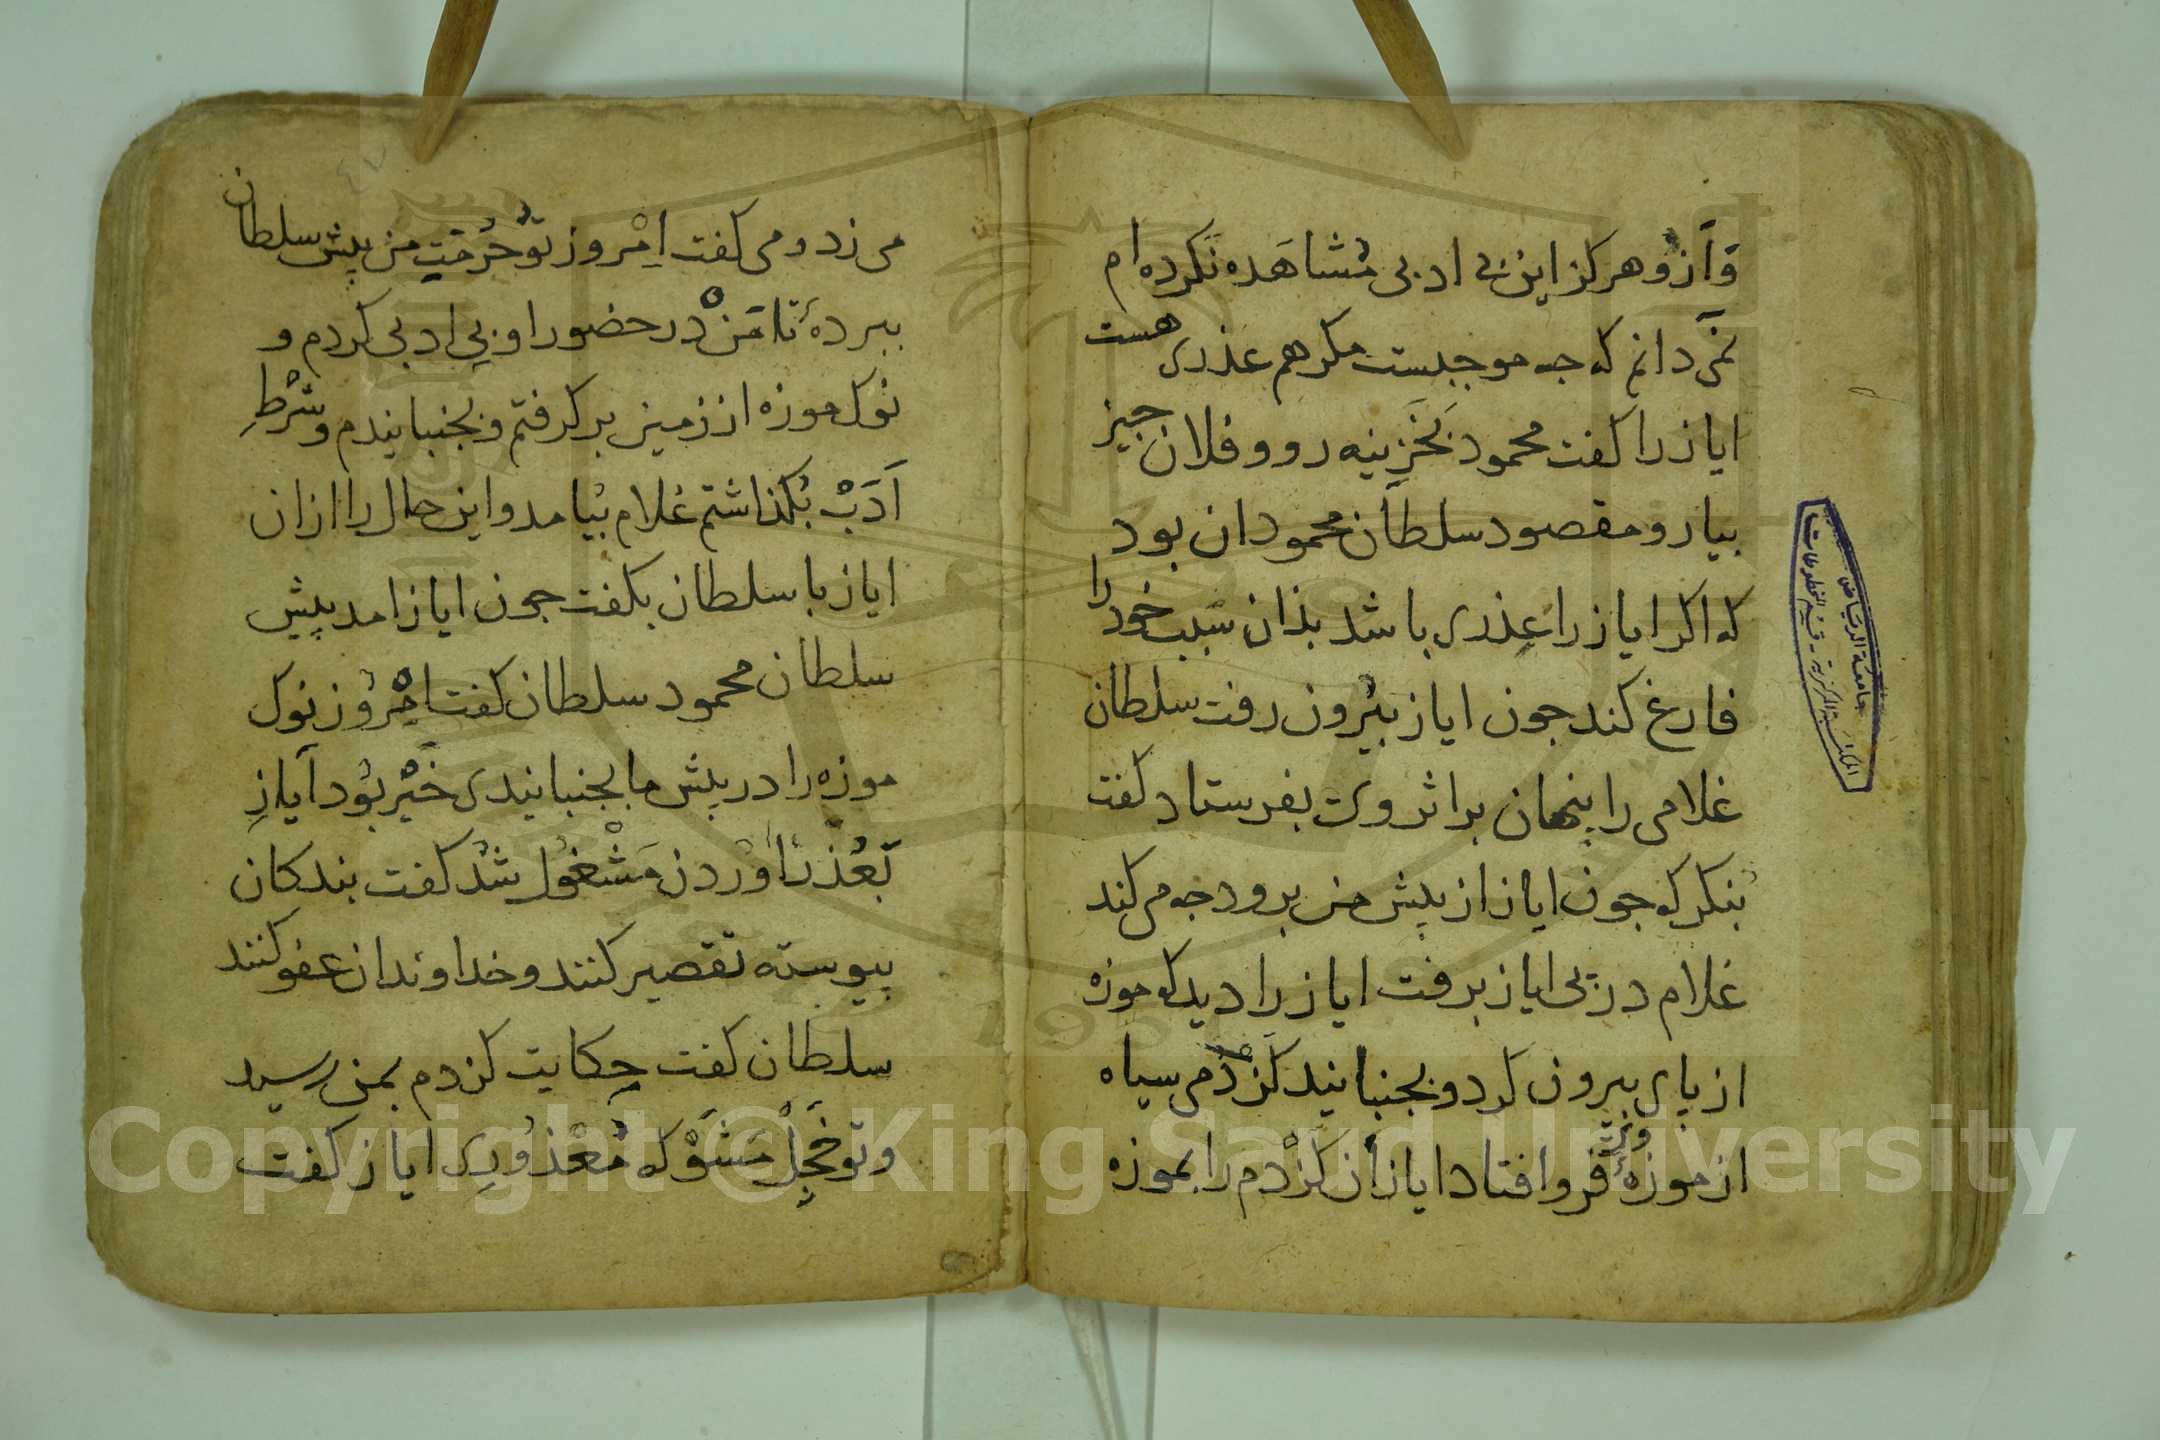 وَاَزوُ هرکز این بی ادبی مُشاهَده نَکرده ام
نمَی دانم که جه موجبست مکر هم عذری هست
ایاز را کفت محمود بَخَزِینه رو و فلان جیز
بیار و مقصود سلطان محمود ان بود
که اکر ایاز را عذری باشد بذان سَبب خود را
فارغ کند جون ایاز بیُرون رفت سلطان
غلامی را پنهان براثر وی بفرستاد کفت
بنکر که جون ایاز از پیش من برود جه می کند
غلام در پی ایاز برفت ایاز را دید که موزه
از پای بیرون کرد و بجنبانید کَزْدُمی سیاه
از موزهٔ وی فرو افتاد ایاز آن کزْدم را بموزه
می زد و می کفت اِمْروز توُ حُرْمَتِ من پیش سلطان
ببردهٔ تا مَنْ در حضور او بی ادبی کردم و
نوک موزه از زمین بر کرفتم و بجنبانیدم و شَرْطِ
اَدَبْ بُکذاشتم غلام بیُامد و این حال را ازان
ایاز با سلطان بکفت جون ایاز امد پیش
سلطان محمود سلطان کفت اِمْرُوز نوک
موزه را در پیش ما بجنبانیدی خَیْر بوُد اَیازِ
بَعُذْر اوَرْدن مَشْغوُل شُد کفت بندکان
پیوسته تقصیر کنند و خداوندان عفو کنند
سلطان کفت حِکایت کزدم بمن رسید
و تو خَجِلْ مَشَوْ که مُعْذوُرِی ایاز کفت
جامعة الرياض
المكتبة المركزية - قسم المخطوطات
٤٧
Copyright © King Saud University